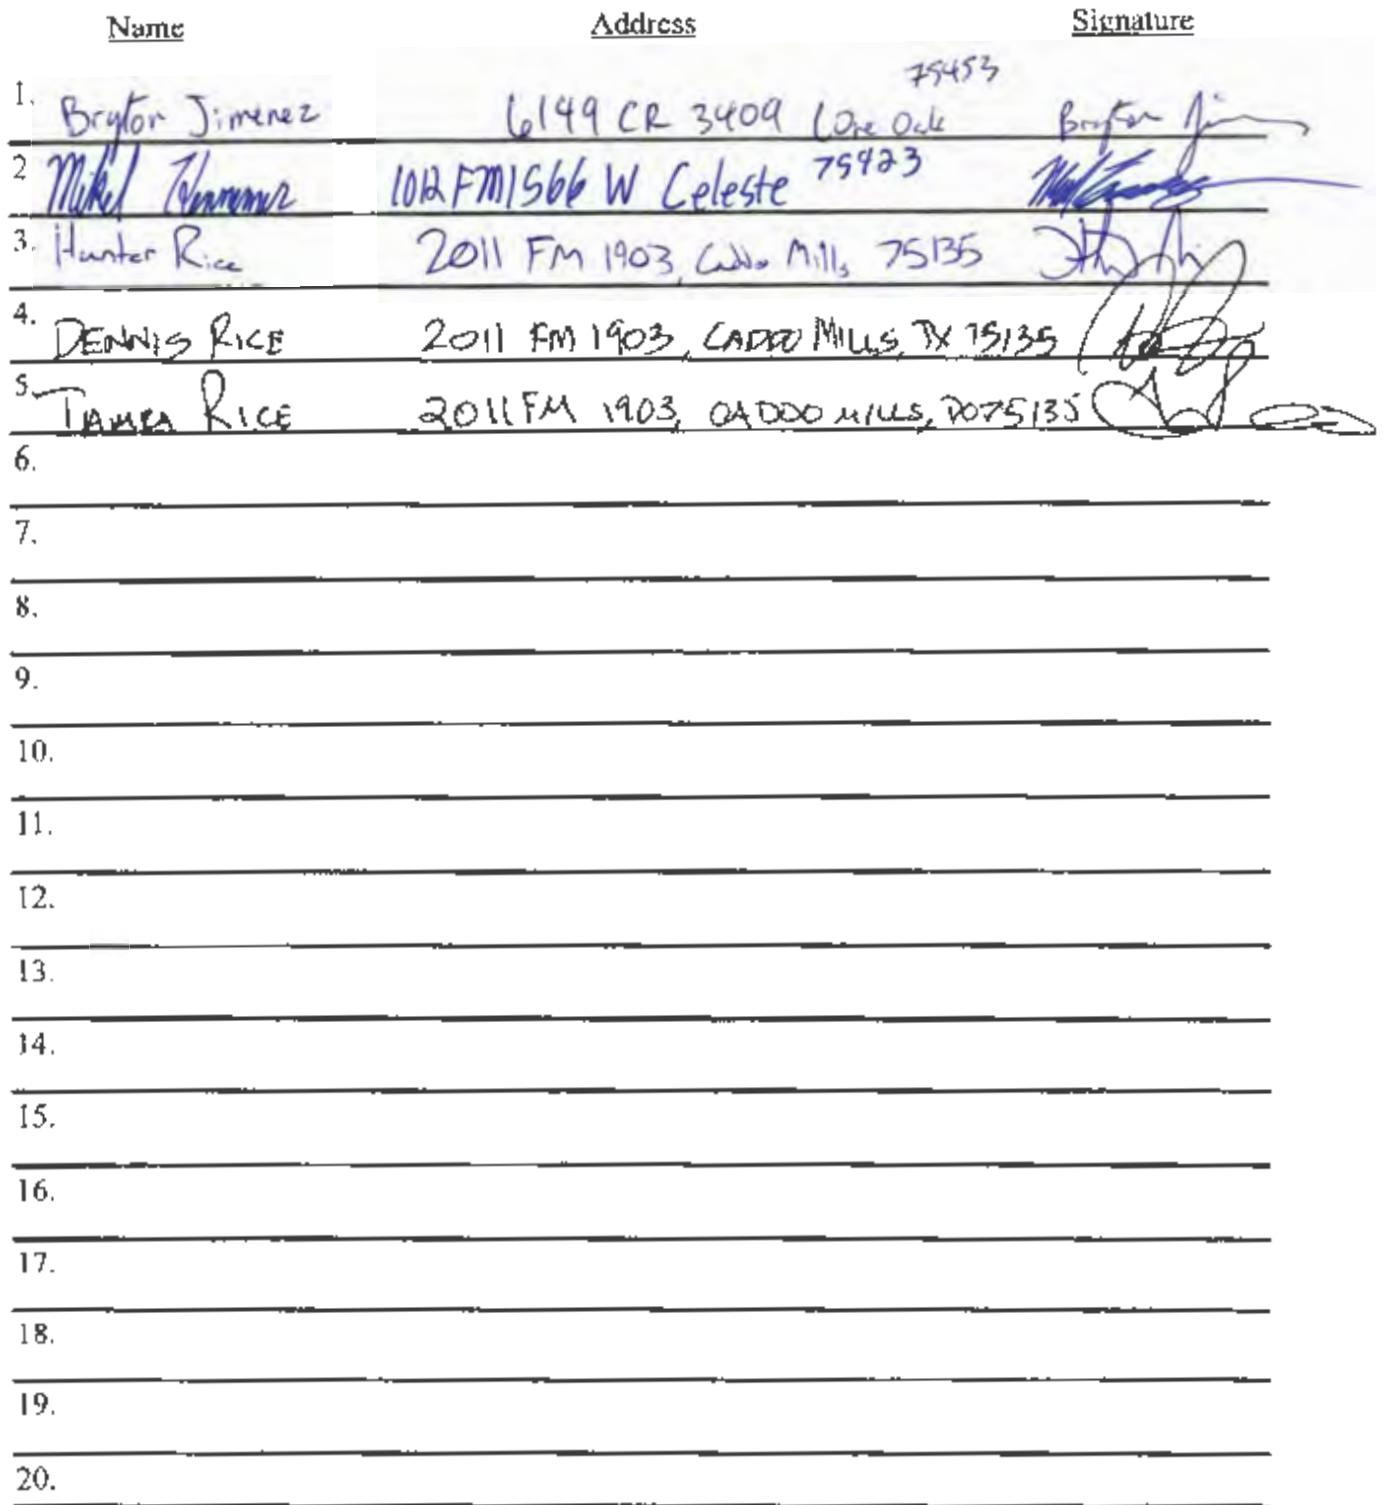 Name Address Signature
75453
1. Bryton Jimenez 6149 CR 3409 Lone Oak Bryton
2 Mikel 1012 FM1566 W Celeste 75423
3. Hunter Rice 2011 FM 1903, Caddo Mills 75135
4. DENNIS RICE 2011 FM 1903, CADDO MILLS, TX 75135
5. TAMRA RICE 2011 FM 1903, CADDO MILLS, 75135
6.
7.
8.
9.
10.
11.
12.
13.
14.
15.
16.
17.
18.
19.
20.